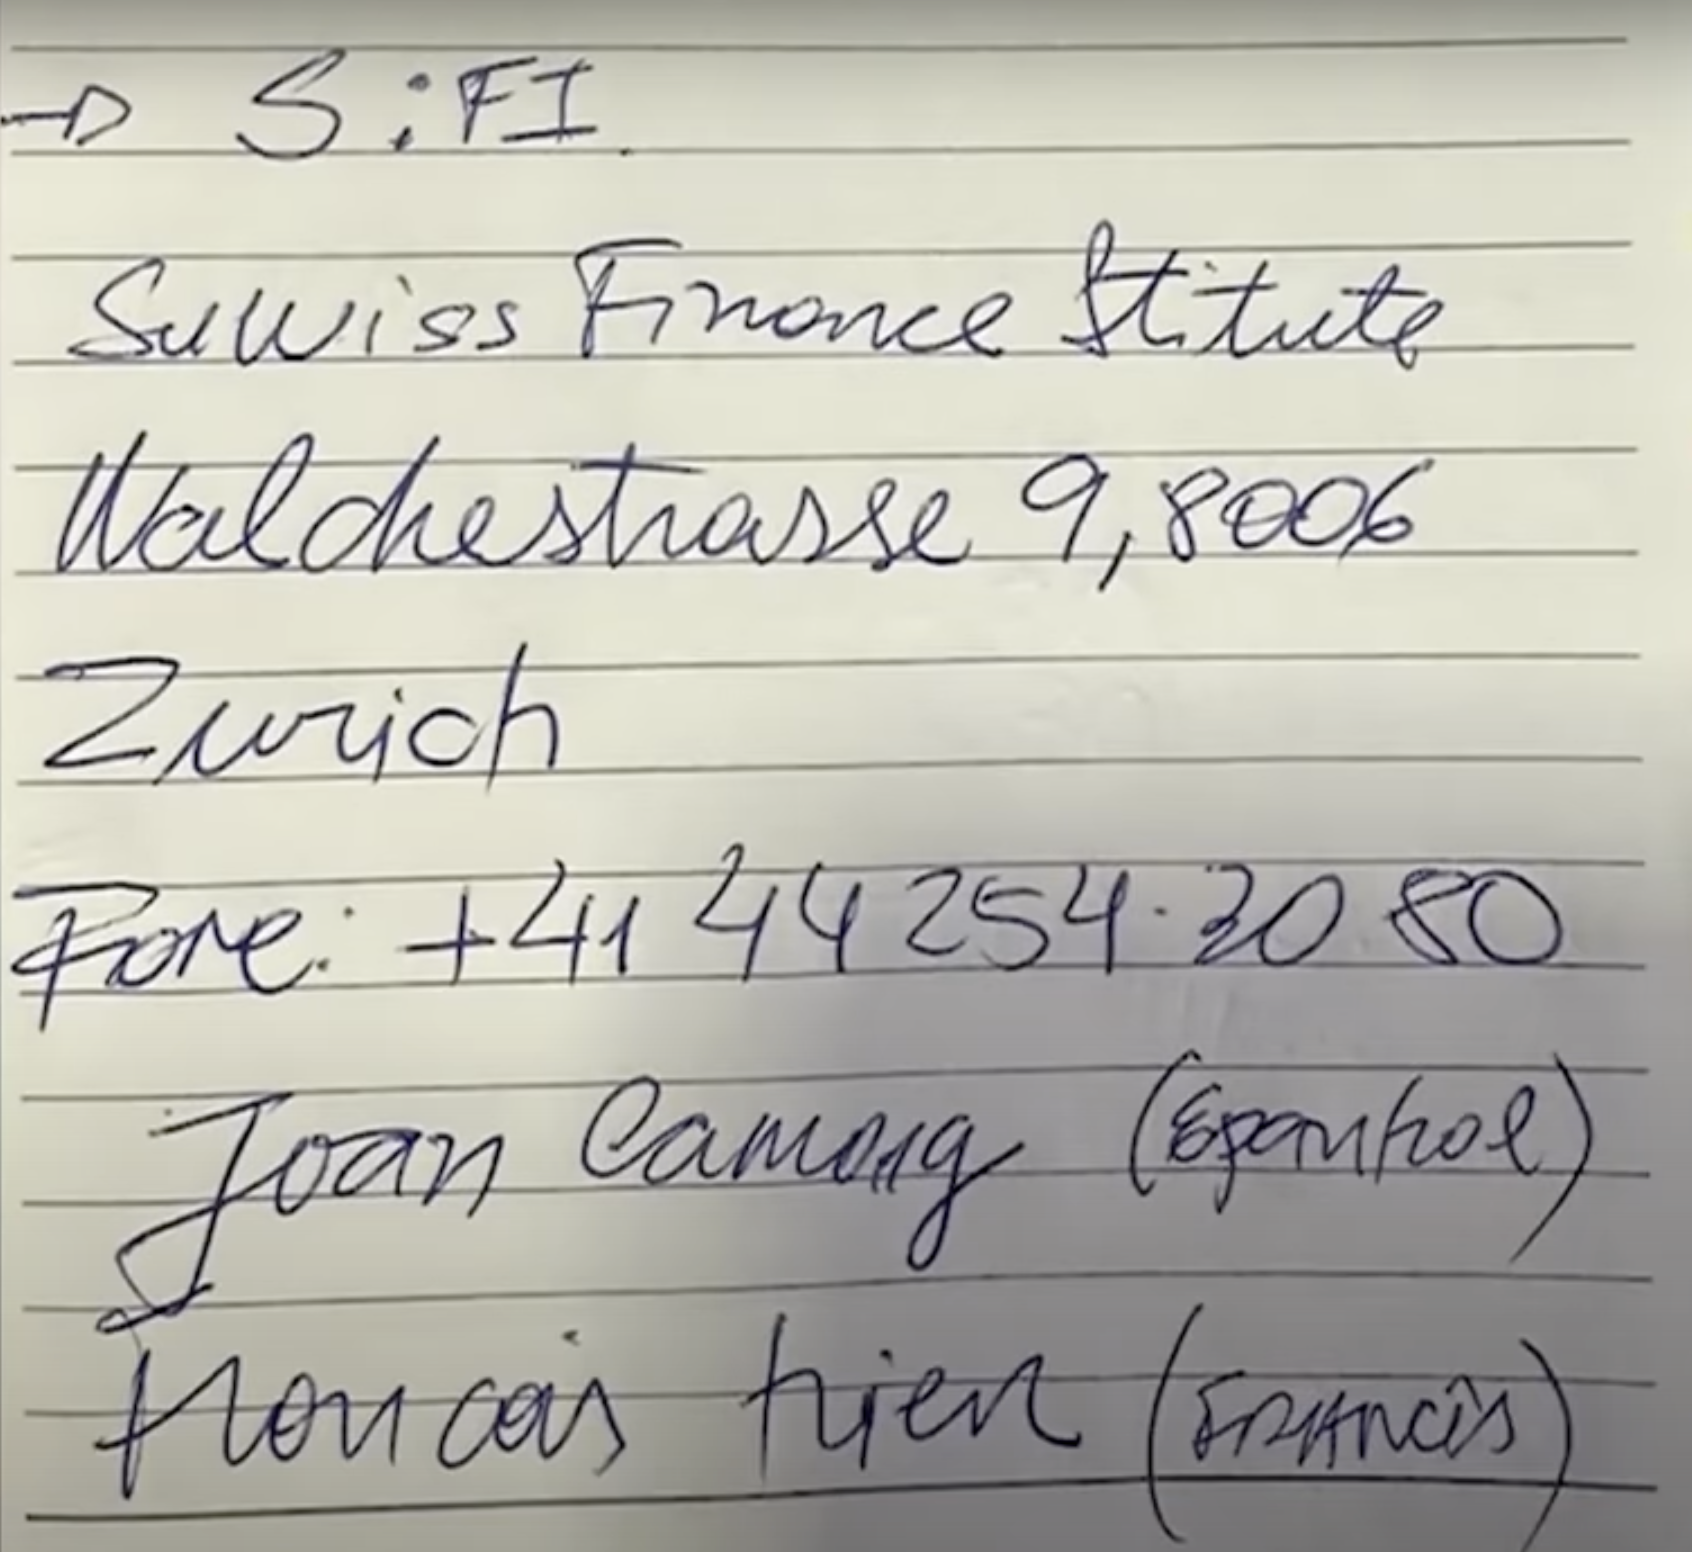 → S:FI.
Suwiss Finance Stitute
Walchestrasse 9, 8006
Zurich
Fone: +41 44 254.30 80
Joan Camoig (Espanhol)
Francois hien (FRANCÊS)